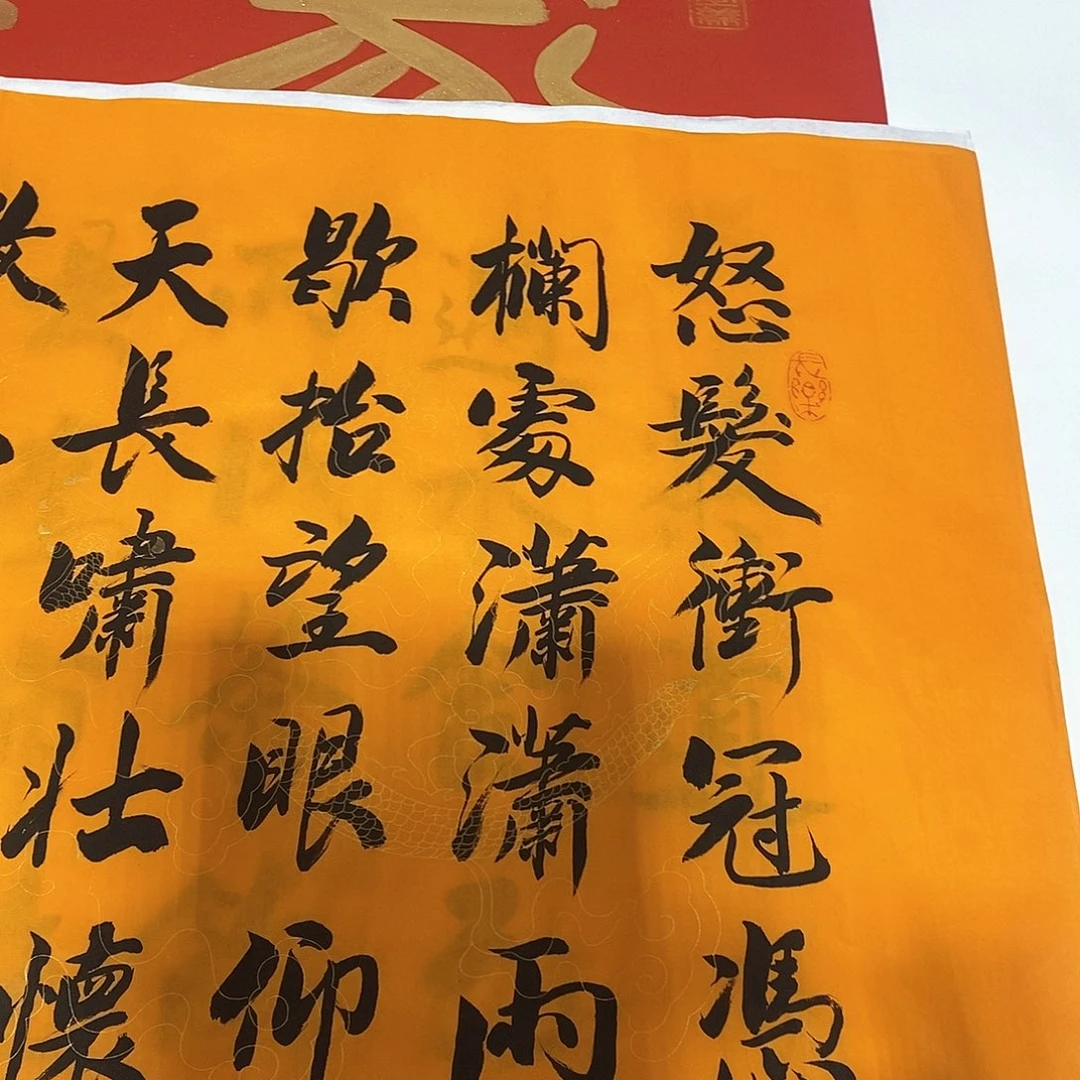 怒髮衝冠憑
欄處瀟瀟雨
歇抬望眼仰
天長嘯壯懷